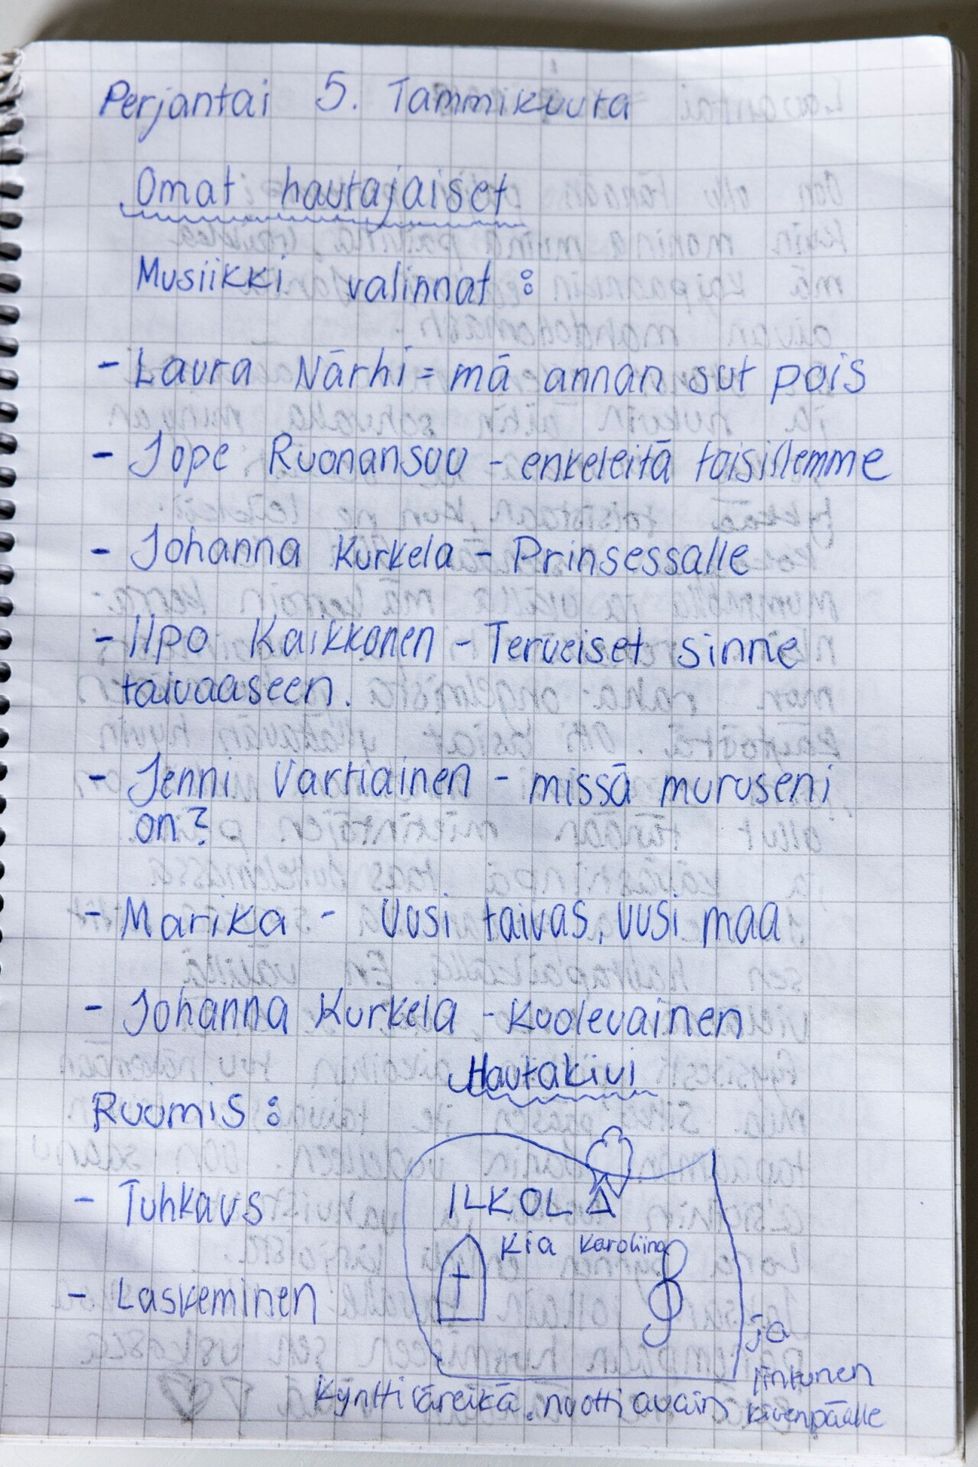 Perjantai 5. Tammikuuta
Omat hautajaiset
Musiikki valinnat:
- Laura Närhi = mä annan sut pois
- Jope Ruonansuu - enkeleitä toisillemme
- Johanna Kurkela - Prinsessalle
- Ilpo Kaikkonen - Terveiset sinne
taivaaseen.
- Jenni Vartiainen - missä muruseni
on?
- Marika - Uusi taivas, uusi maa
- Johanna Kurkela - Kuolevainen
Hautakivi
Ruumis:
- Tuhkaus
- Laskeminen
ILKOLA
Kia Karoliina
Kynttilänreikä, nuottiavain
ja
lintunen
kivenpäälle